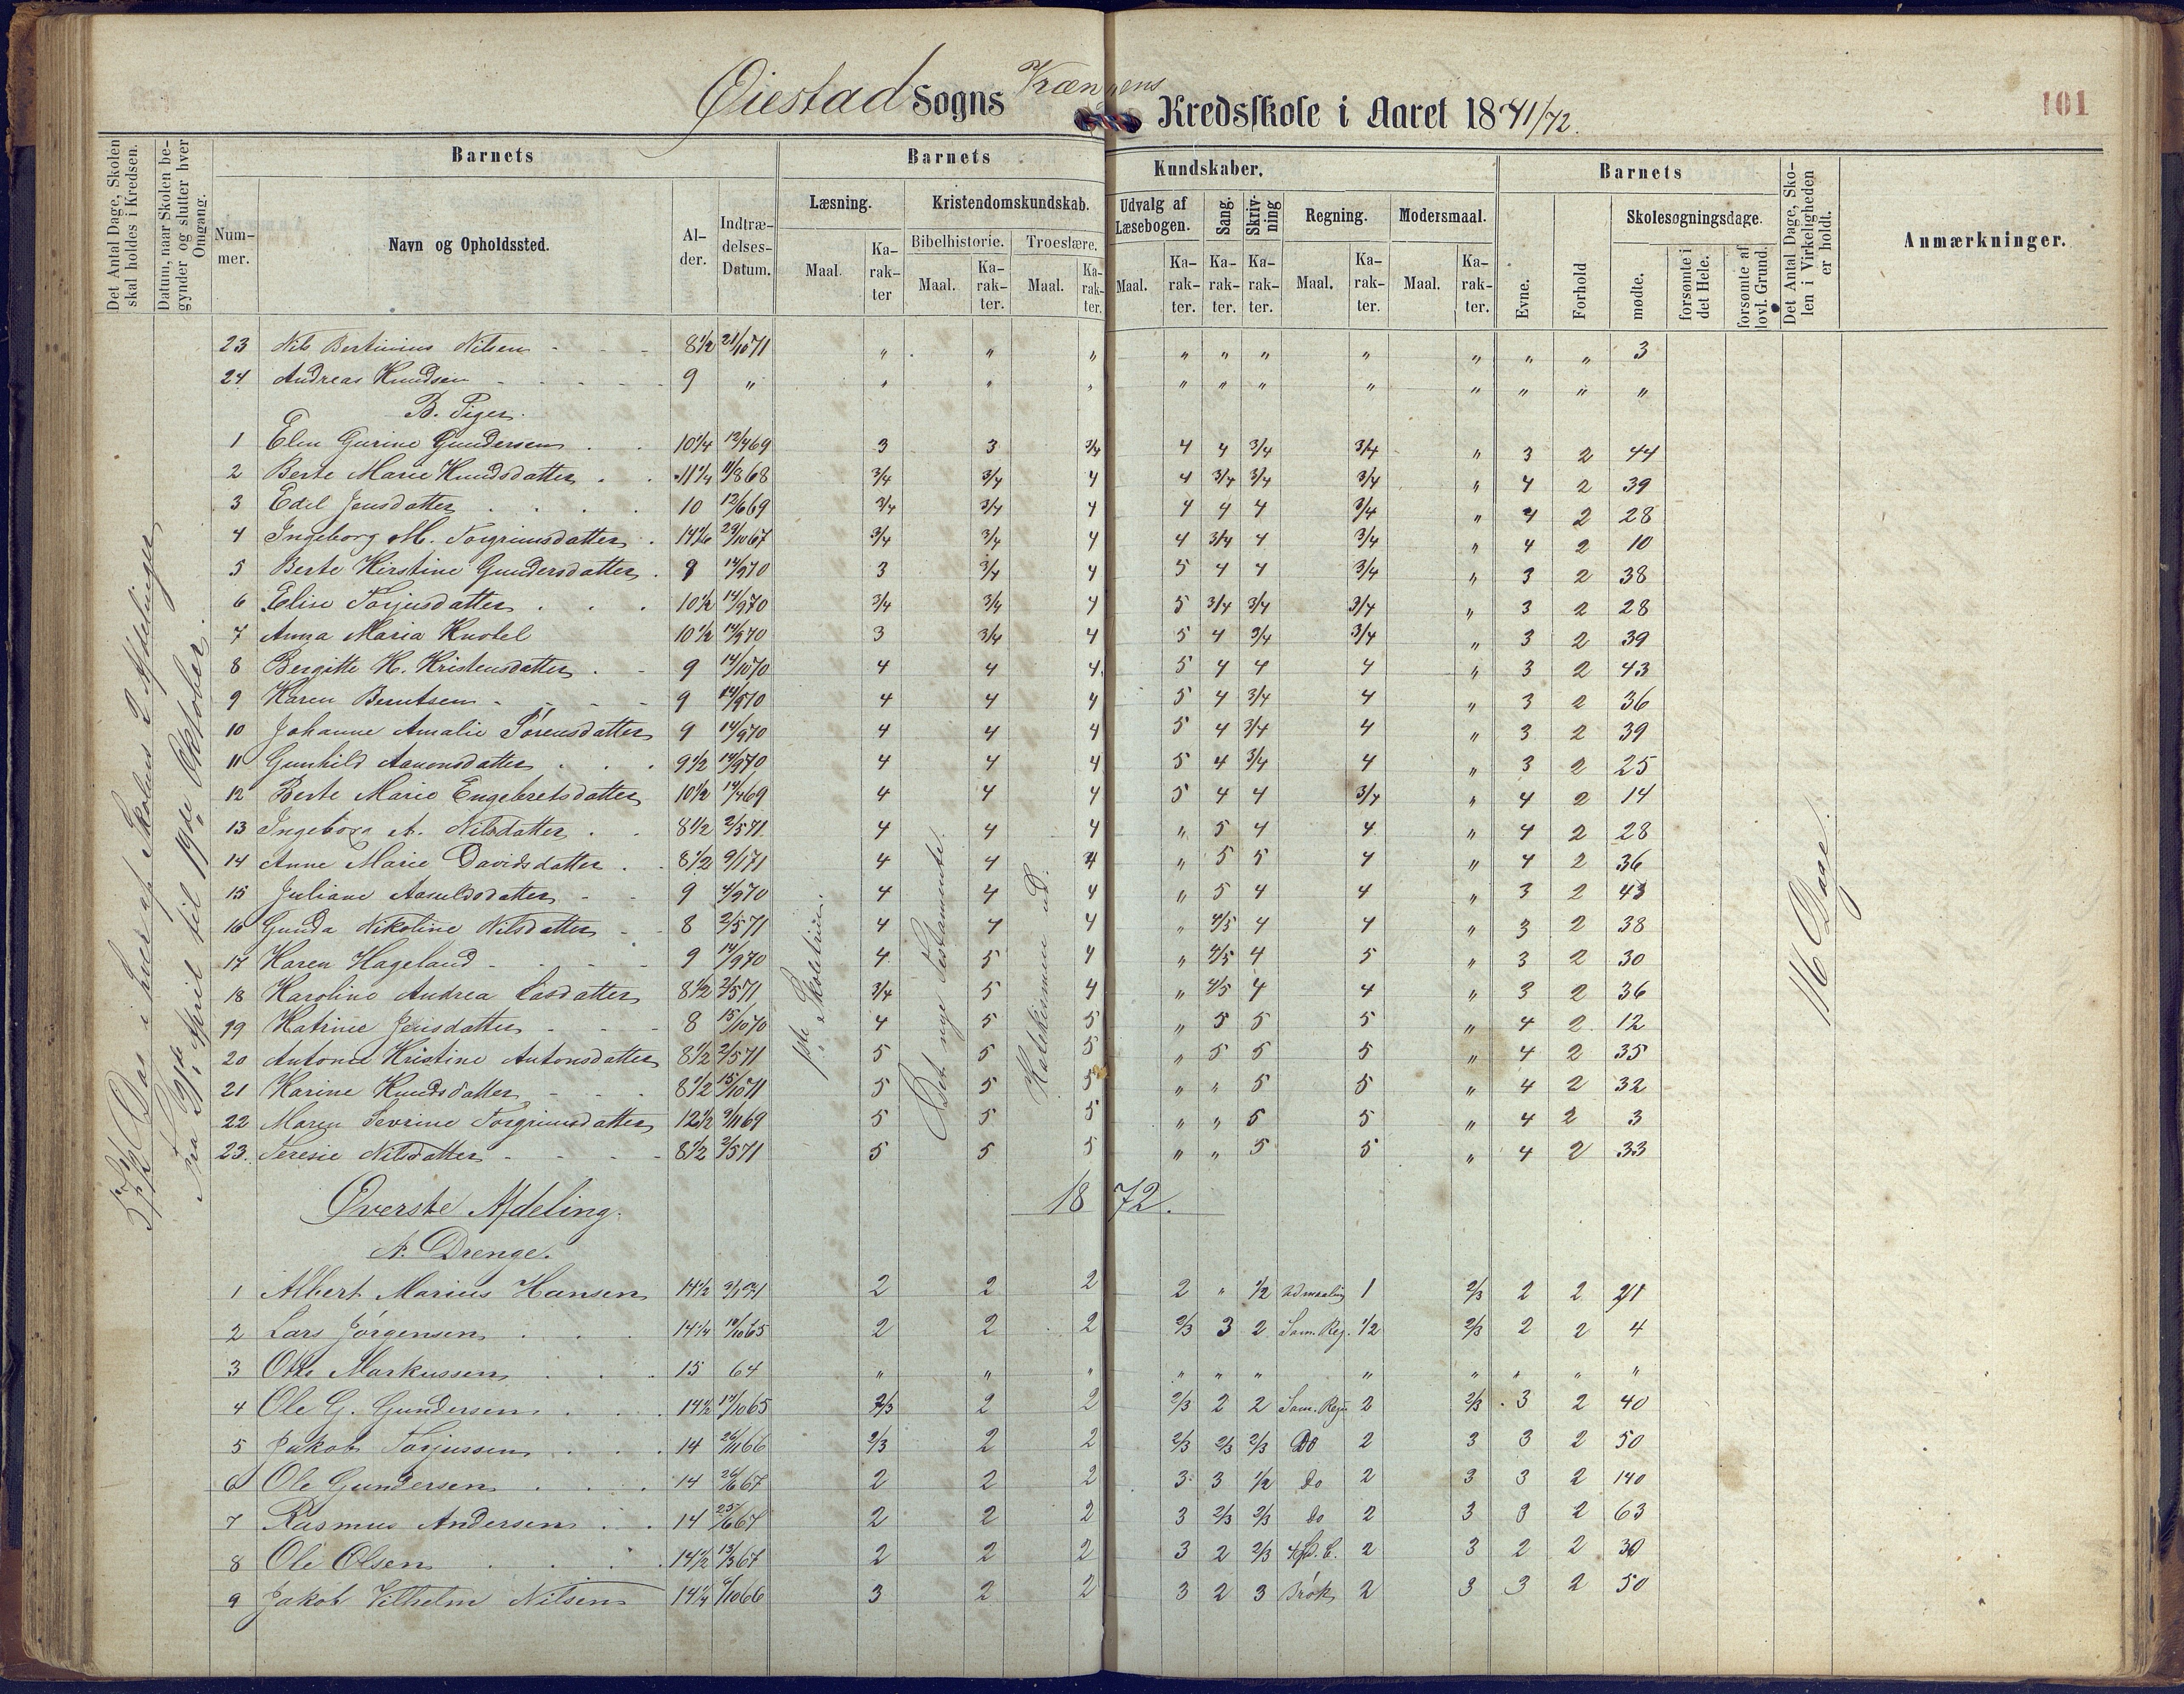 Øiestad Sogns Kredsskole i Aaret 1871/72.
101
Det Antal Dage, Skolen skal holdes i Kredsen.
Datum, naar Skolen begynder og slutter hver Omgang.
Barnets
Nummer.
Navn og Opholdssted.
Alder.
Indtrædelses-Datum.
Barnets Kundskaber.
Læsning.
Maal.
Karakter
Kristendomskundskab.
Bibelhistorie.
Maal.
Karakter.
Troeslære.
Maal.
Karakter.
Udvalg af Læsebogen.
Maal.
Karakter.
Sang.
Karakter.
Skrivning
Karakter.
Regning.
Maal.
Karakter.
Modersmaal.
Maal.
Karakter.
Barnets
Evne.
Forhold
Skolesøgningsdage.
mødte.
forsømte i det Hele.
forsømte af lovl. Grund.
Det Antal Dage, Skolen i Virkeligheden er holdt.
Anmærkninger.
23 Nils Bertinius Nilsen 8 1/2 21/10 71 " " " " " " " " " " 3
24 Andreas Knudsen 9 " " " " " " " " " " " "
B. Piger.
1 Elen Gurine Gundersen 10 1/4 12/4 69 3 3 3/4 4 4 3/4 3/4 " 3 2 44
2 Berte Marie Knudsdatter 11 1/4 11/8 68 3/4 3/4 4 4 3/4 3/4 3/4 " 4 2 39
3 Edel Jensdatter 10 12/6 69 3/4 3/4 4 4 4 4 3/4 " 4 2 28
4 Ingeborg M. Torgrimsdatter 29/10 67 3/4 3/4 4 4 3/4 4 3/4 " 4 2 10
5 Berte Kirstine Gundersdatter 9 14/9 70 3 3/4 4 5 4 4 3/4 " 3 2 38
6 Elise Torjusdatter 10 1/2 14/9 70 3/4 3/4 4 5 3/4 3/4 3/4 " 3 2 28
7 Anna Maria Knobel 10 1/2 14/9 70 3 3/4 4 5 4 3/4 3/4 " 3 2 39
8 Bergitte K. Kristensdatter 9 14/10 70 4 4 4 5 4 4 4 " 3 2 43
9 Karen Berntsen 9 14/9 70 4 4 4 5 4 3/4 4 " 3 2 36
10 Johanne Amalie Sørensdatter 9 14/9 70 4 4 4 5 4 3/4 4 " 3 2 39
11 Gunhild Aanonsdatter 9 1/2 14/9 70 4 4 4 5 4 3/4 4 " 3 2 25
12 Berte Marie Engebretsdatter 10 1/2 14/4 69 4 4 4 5 4 4 3/4 " 4 2 14
13 Ingeborg A. Nilsdatter 8 1/2 2/5 71 4 4 4 " 5 4 4 " 4 2 28
14 Anne Marie Davidsdatter 8 1/2 9/1 71 4 4 4 " 5 5 4 " 4 2 36
15 Juliane Aasuldsdatter 9 4/9 70 4 4 4 " 5 4 4 " 3 2 43
16 Gunda Nikoline Nilsdatter 8 2/5 71 4 4 4 " 4/5 4 4 " 3 2 38
17 Karen Hageland 9 14/9 70 4 5 4 " 4/5 4 5 " 3 2 30
18 Karoline Andrea Lasdatter 8 1/2 2/5 71 3/4 5 4 " 4/5 4 4 " 3 2 36
19 Katrine Jensdatter 8 15/10 70 4 5 5 " 5 5 5 " 4 2 12
20 Antonie Kristine Antonsdatter 8 1/2 2/5 71 5 5 5 " 5 5 5 " 4 2 35
21 Karine Knudsdatter 8 1/2 15/10 71 5 5 5 " " 5 5 " 4 2 32
22 Maren Sevrine Torgrimsdatter 12 1/2 9/11 69 5 5 5 " " 5 5 " 4 2 3
23. Teresie Nilsdatter 8 1/2 2/5 71 5 5 5 " " 5 5 " 4 2 33
Dag i hver af Skolens 2 Afdelinger
Fra April til 19de Oktober.
Det nye Testamente
Katekismen ud.
116 Dage.
1872.
Øverste Afdeling.
A. Drenge.
1 Albert Marius Hansen 14 1/2 9/1 71 2 2 2 2 " 1/2 Udmaaling 1 2/3 2 2 21
2 Lars Jørgensen 14 1/4 10/10 65 2 2 2 2/3 3 2 Sam. Reg. 1/2 2/3 2 2 4
3 Otto Markussen 15 64 " " " " " " " " " " "
4 Ole G. Gundersen 14 1/2 17/10 65 2/3 2 2 2/3 2 2 Sam. Reg. 2 2/3 3 2 40
5 Jakob Torjussen 14 26/11 66 2/3 2 2 2/3 2/3 2/3 Do 2 3 3 2 50
6 Ole Gundersen 14 26/6 67 2 2 2 3 3 1/2 do 2 3 3 2 140
7 Rasmus Andersen 14 25/6 67 2 2 2 3 2/3 2/3 do 2 3 3 2 63
8 Ole Olsen 14 1/2 13/3 67 2 2 2 3 2 2/3 2 3 2 2 30
9 Jakob Vilhelm Nilsen 14 1/4 66 3 2 2 3 2 3 Brøk 2 3 3 2 50